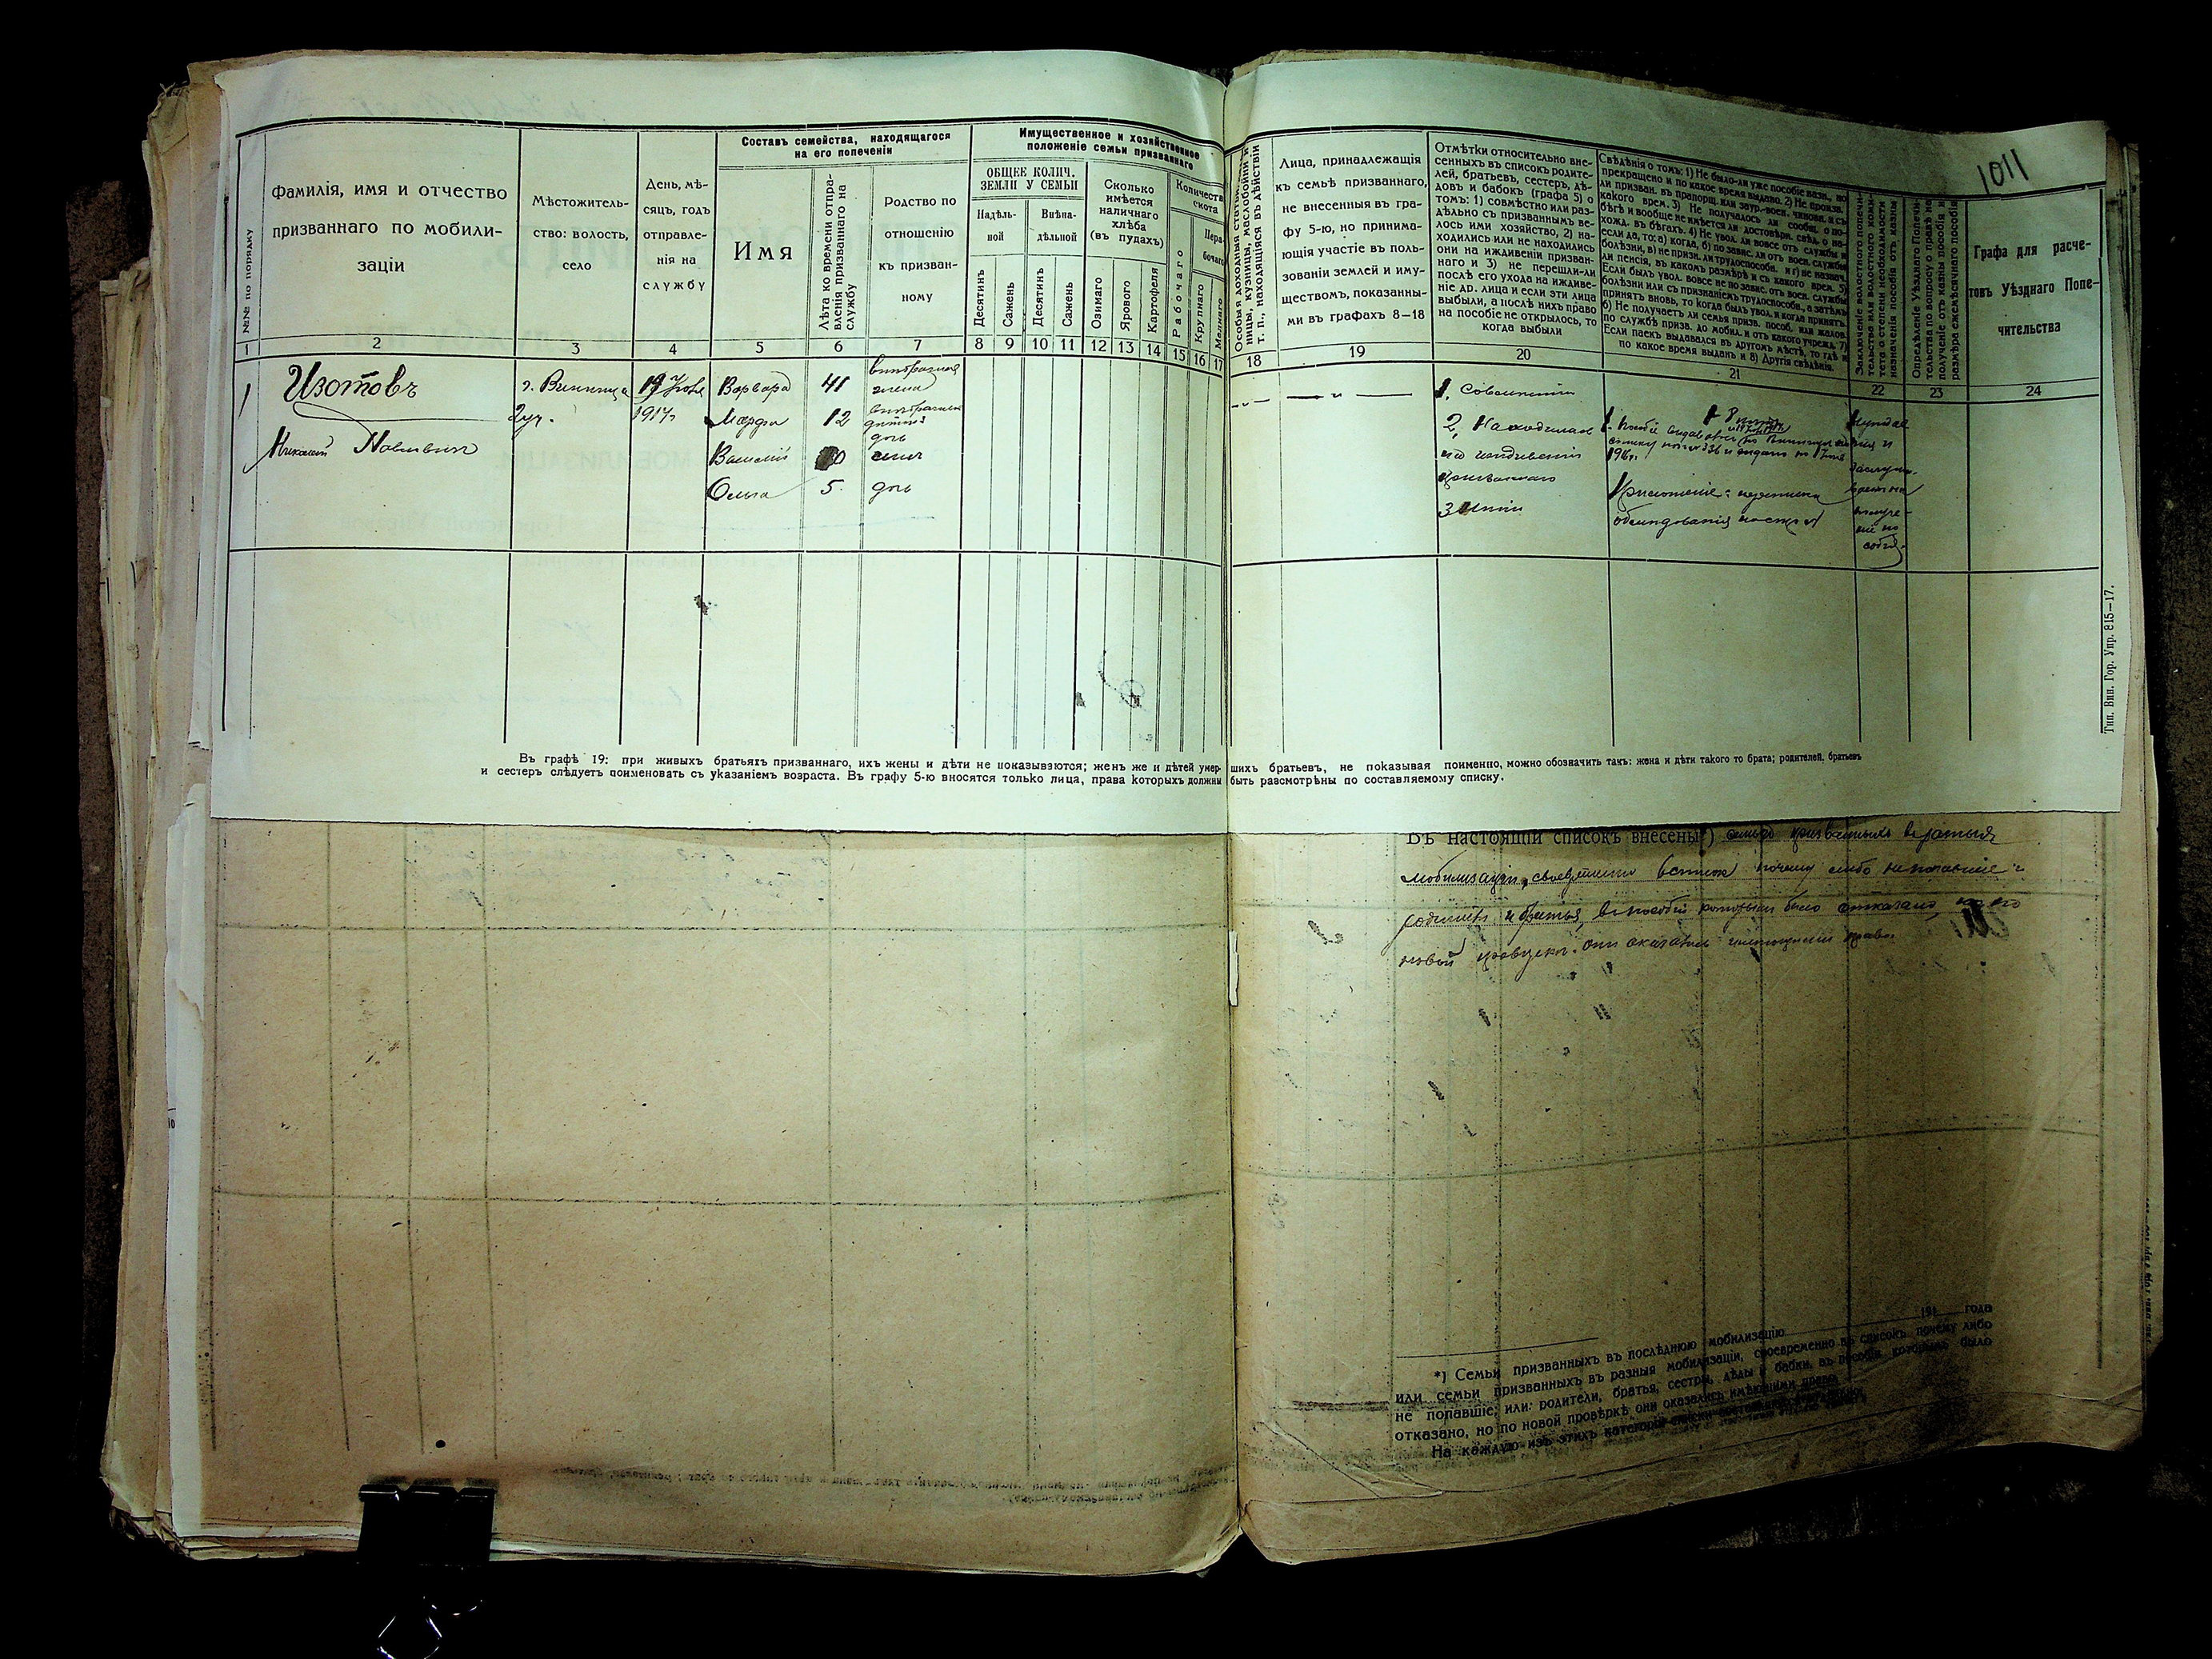 1011
Составъ семейства, находящагося
на его попеченіи
Имущественное и хозяйственное
положеніе семьи призваннаго
№№ по порядку
Фамилія, имя и отчество
призваннаго по мобили-
заціи
Мѣстожитель-
ство: волость,
село
День, мѣ-
сяцъ, годъ
отправле-
нія на
службу
Имя
Лѣта ко времени отпра-
вленія призваннаго на
службу
Родство по
отношенію
къ призван-
ному
ОБЩЕЕ КОЛИЧ.
ЗЕМЛИ У СЕМЬИ
Надѣль-
ной
Внѣна-
дѣльной
Десятинъ
Сажень
Десятинъ
Сажень
Сколько
имѣется
наличнаго
хлѣба
(въ пудахъ)
Озимаго
Ярового
Картофеля
Количества
скота
Рабочаго
Нера-
бочаго
Крупнаго
Мелкаго
Особыя доходныя статьи
ницы, кузницы, маслобойни и
т. п., находящіяся въ дѣйствіи
Лица, принадлежащія
къ семьѣ призваннаго,
не внесенныя въ гра-
фу 5-ю, но принима-
ющія участіе въ поль-
зованіи землей и иму-
ществомъ, показанны-
ми въ графахъ 8—18
Отмѣтки относительно вне-
сенныхъ въ списокъ родите-
лей, братьевъ, сестеръ, дѣ-
довъ и бабокъ (графа 5) о
томъ: 1) совмѣстно или раз-
дѣльно съ призваннымъ ве-
лось ими хозяйство, 2) на-
ходились или не находились
они на иждивеніи призван-
наго и 3) не перешли-ли
послѣ его ухода на иждиве-
ніе др. лица и если эти лица
выбыли, а послѣ нихъ право
на пособіе не открылось, то
когда выбыли
Свѣдѣнія о томъ: 1) Не было-ли уже пособіе назн., но
прекращено и по какое время выдано. 2) Не произв.
ли призван. въ прапорщ. или заур.-воен. чиновн. и съ
какого врем. 3) Не получалось ли сообщ. о по-
бѣгѣ и вообще не имѣется ли достовѣрн. свѣд. о на-
хожд. въ бѣгахъ. 4) Не увол. ли вовсе отъ службы и
если да, то: а) когда, б) по завис. ли отъ воен. службы
болѣзни, в) не призн. ли трудоспособн. и г) не назнач.
ли пенсія, въ какомъ размѣрѣ и съ какого врем. 5)
Если былъ увол. вовсе не по завис. отъ воен. службы
болѣзни или съ признаніемъ трудоспособ., а затѣмъ
принятъ вновь, то когда былъ увол. и когда принятъ.
6) Не получаетъ ли семья призв. пособ. или жалов.
по службѣ призв. до мобил. и отъ какого учрежд. 7)
Если паекъ выдавался въ другомъ мѣстѣ, то гдѣ и
по какое время выданъ и 8) Другія свѣдѣнія.
Заключеніе волостного попечи-
тельства или волостного коми-
тета о степени необходимости
назначенія пособія отъ казны
Опредѣленіе Уѣзднаго Попечи-
тельства по вопросу о правѣ на
полученіе отъ казны пособія и
размѣра ежемѣсячнаго пособія
Графа для расче-
товъ Уѣзднаго Попе-
чительства
1 2 3 4 5 6 7 8 9 10 11 12 13 14 15 16 17 18 19 20 21 22 23 24
1 Изотовъ
г. Винница
2 уч.
19
1914 г.
Варвара 41
жена
Марфа 12
дочь
Василій сынъ
Ольга 5. дочь
Николай
1.
2. Находилась
на иждивеніи
призваннаго
3
Въ графѣ 19: при живыхъ братьяхъ призваннаго, ихъ жены и дѣти не показываются; женъ же и дѣтей умер- шихъ братьевъ, не показывая поименно, можно обозначить такъ: жена и дѣти такого то брата; родителей, братьевъ
и сестеръ слѣдуетъ поименовать съ указаніемъ возраста. Въ графу 5-ю вносятся только лица, права которыхъ должны быть разсмотрѣны по составляемому списку.
Тип. Вин. Гор. Упр. 815—17.
Въ настоящій списокъ внесены*) семьи призванныхъ въ разныя
мобилизаціи, своевременно въ списокъ почему либо не попавшіе и
родители и братья, въ пособіи которымъ было отказано, но по
новой провѣркѣ они оказались имеющими право.
191 года
*) Семьи призванныхъ въ послѣднюю мобилизацію
или семьи призванныхъ въ разныя мобилизаціи, своевременно въ списокъ почему либо
не попавшіе; или: родители, братья, сестры, дѣды и бабки, въ пособіи которымъ было
отказано, но по новой провѣркѣ они оказались имѣющими право.
На каждую изъ этихъ категорій